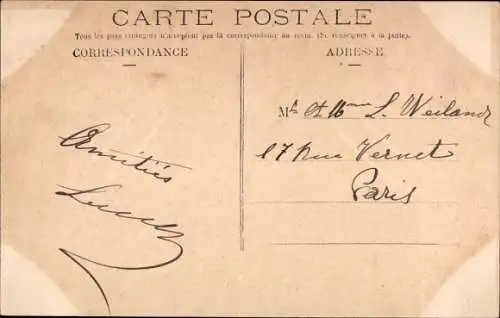 CARTE POSTALE
Tous les pays étrangers n'acceptent pas la correspondance au recto. (Se renseigner à la poste).
CORRESPONDANCE
ADRESSE
Amitiés
Mr et Mme L. Weiland
17 Rue Vernet
Paris